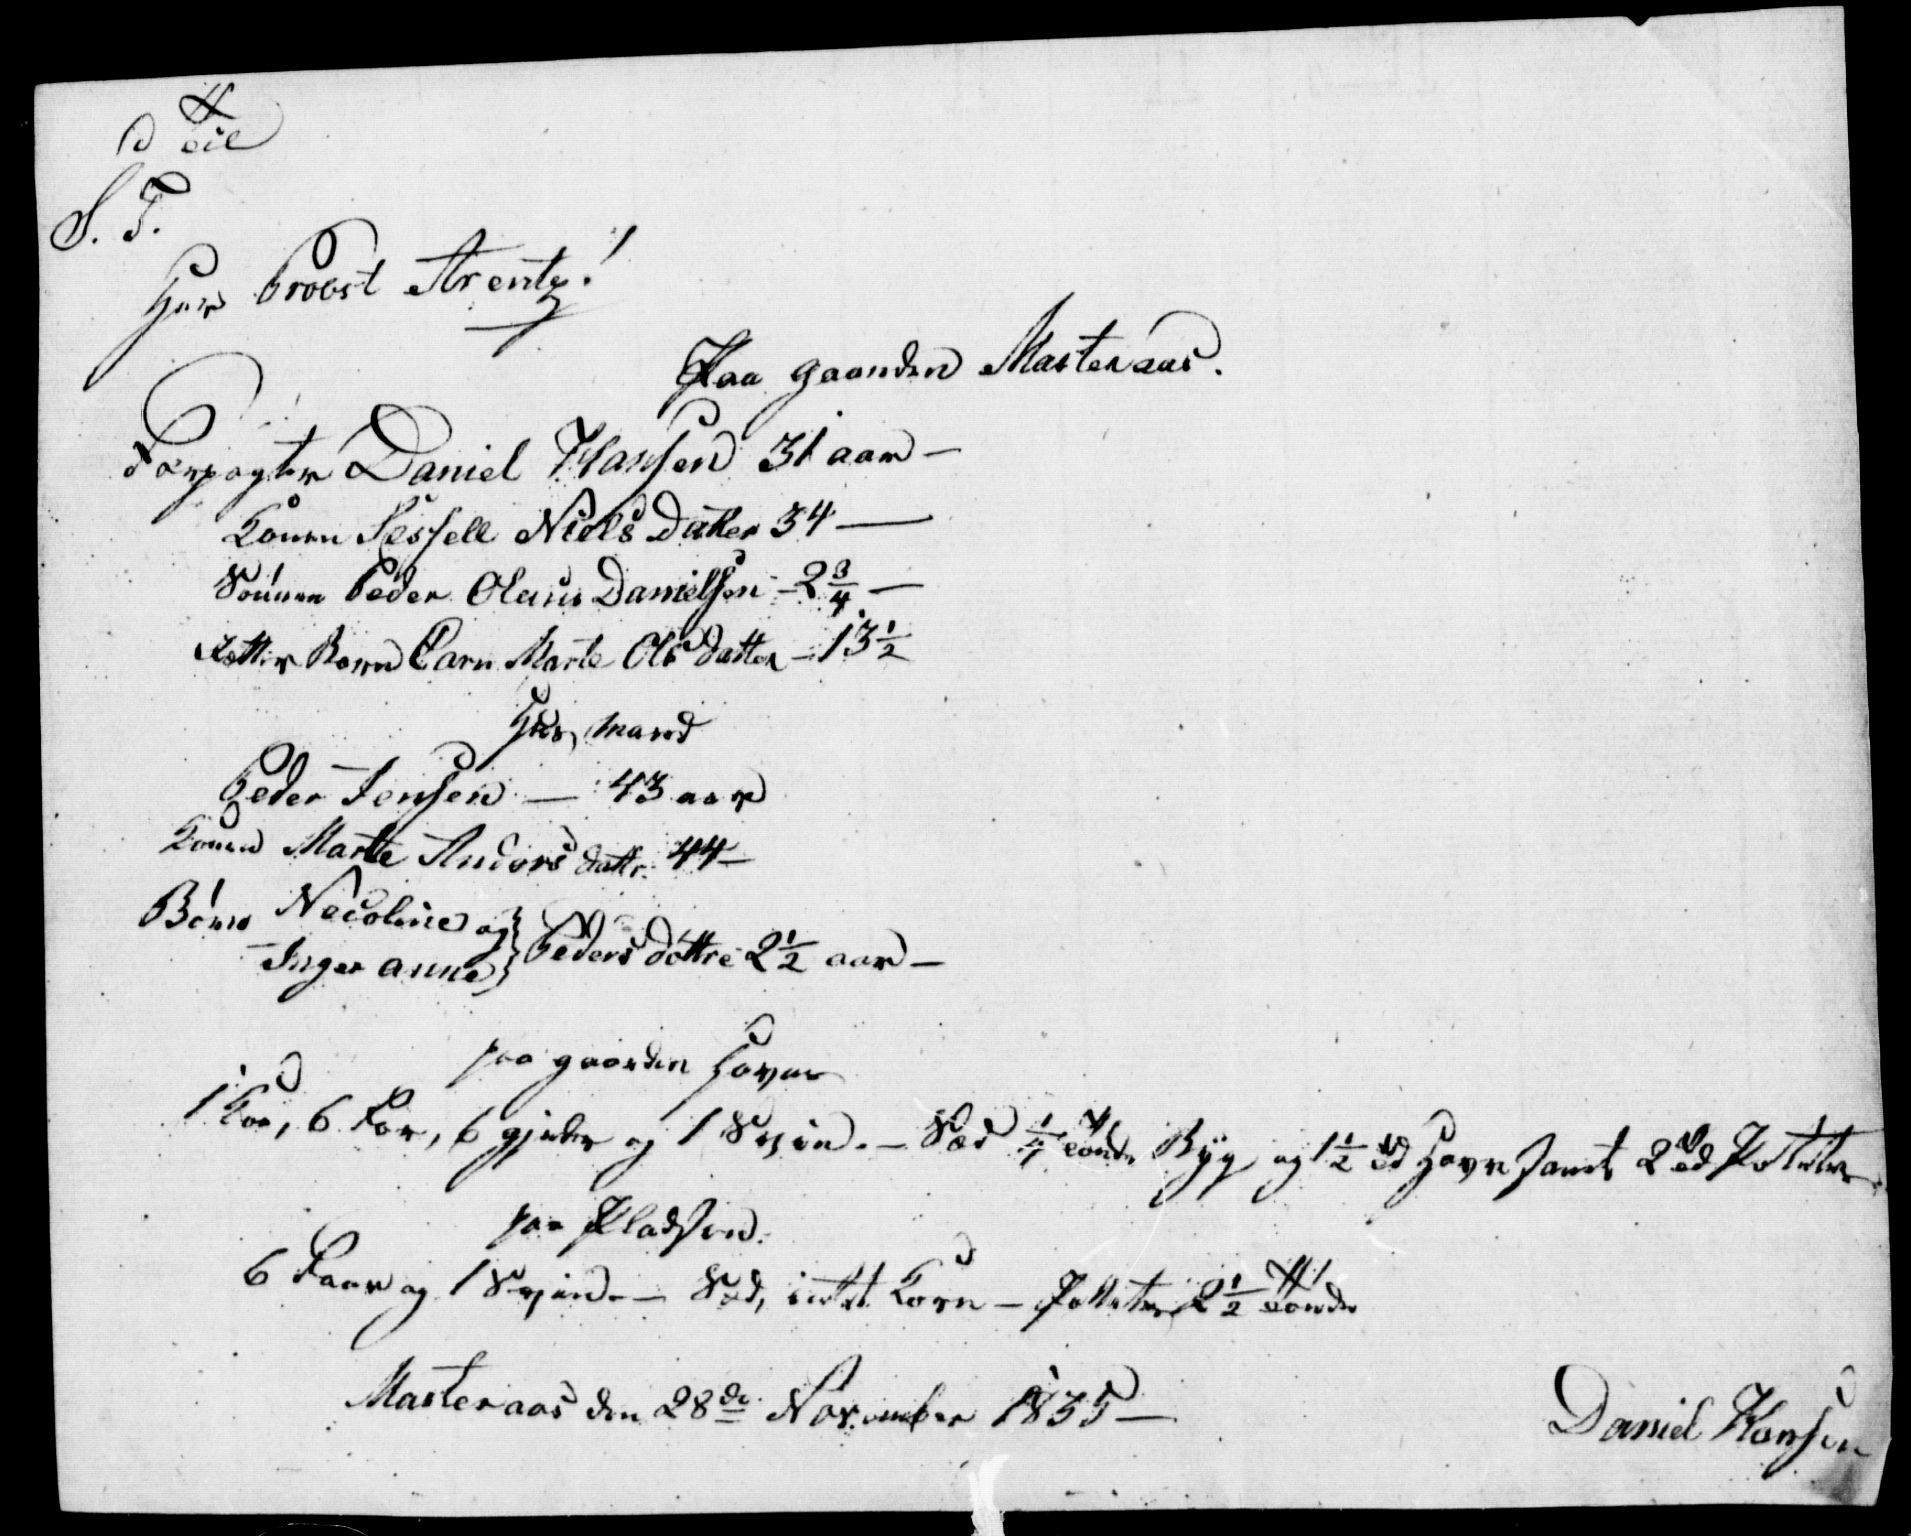 Til
S. T.
Herr Provst Arentz!
Paa gaarden Masteraas.
Forpagter Daniel Hansen 31 aar —
Konen Sessell Niels Datter 34 —
Sönnen Peder Olaus Danielsen - 2 3/4 —
Fostter Barn Caren Marte Ols datter - 13 1/2
Huusmand
Peder Jensen — 43 aar
Konen Marte Andors dattr. 44 —
Börn Necoline og
Inger anne } Peders döttre 2 1/2 aar —
paa gaarden haves
1 Koe, 6 Far, 6 gjeder og 1 Sviin. — Sæd 1/4 tönde Byg og 1 1/2 td Havre samt 2 td Poteter
paa Pladsen.
6 Faar og 1 Sviin. — Sæd, intet Korn — Potteter 2 1/2 tönde
Masteraas den 28de November 1835 —
Daniel Hansen